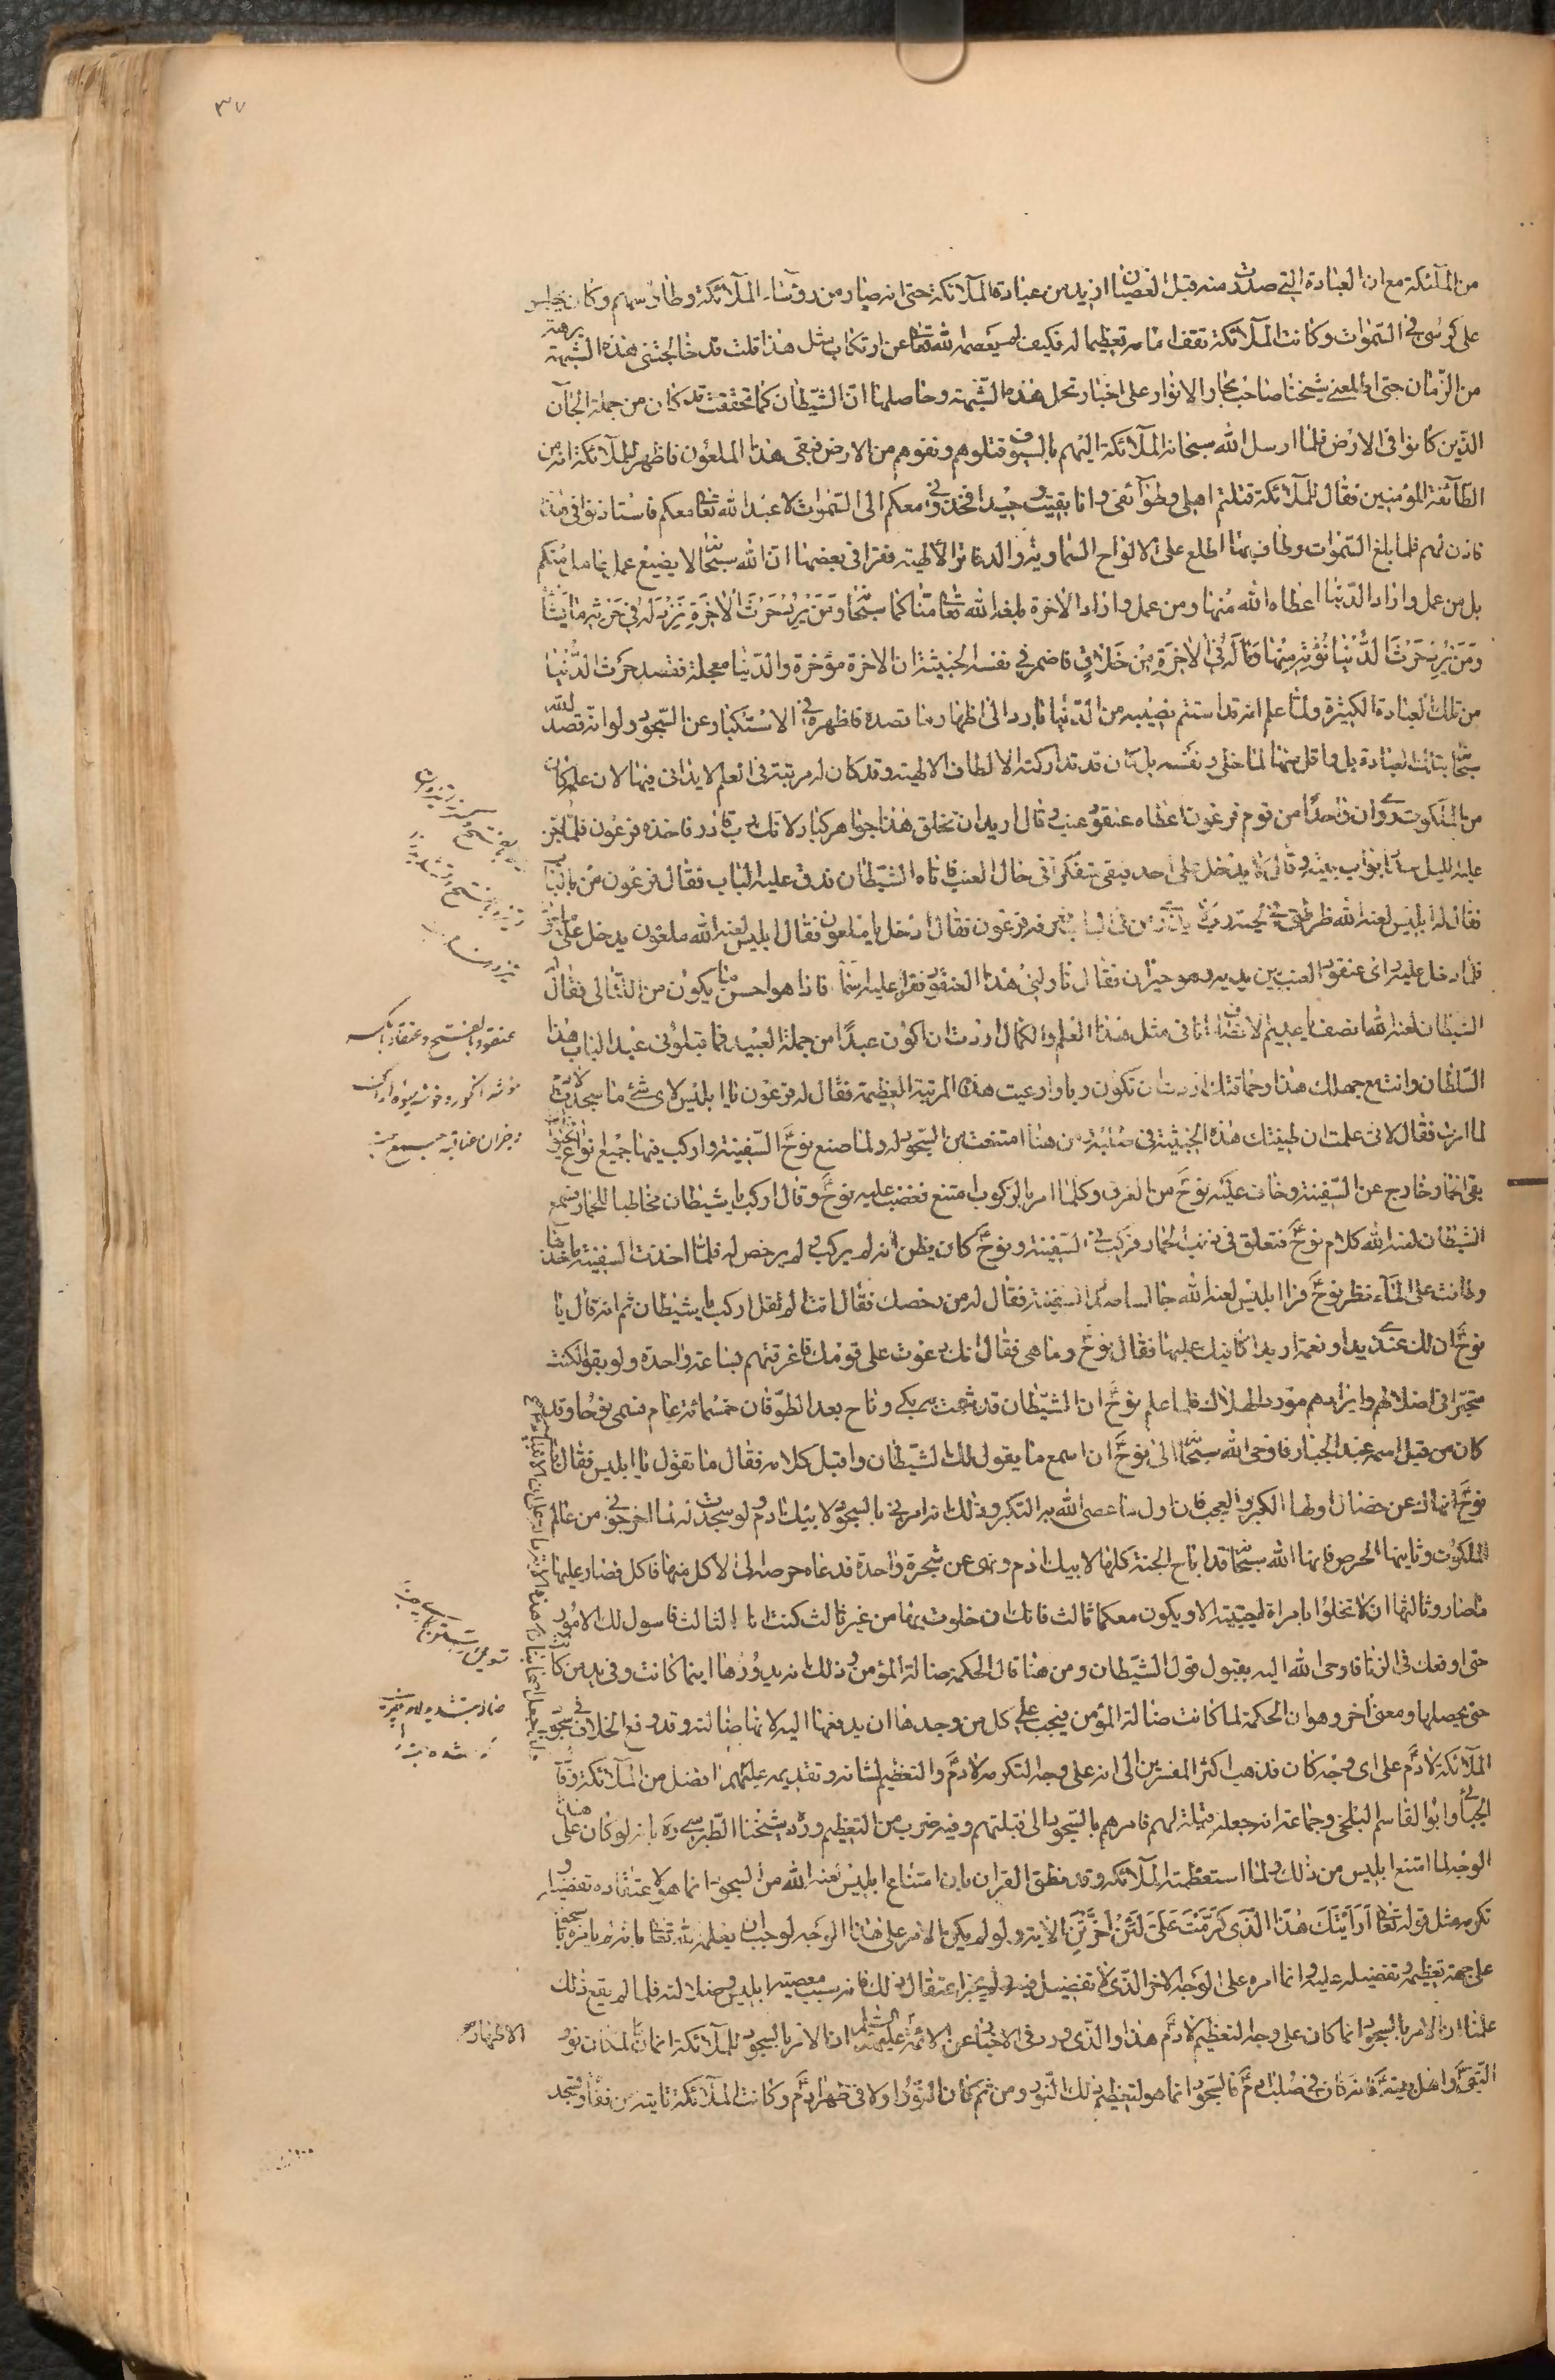 ٣٧
من الملائكة مع ان العبادة التي صدرت منه قبل العصيان ازيد من عبادة الملائكة حتى انه صار من رؤساء الملائكة وطاوسهم وكان يجلس
على كرسى فى السموات وكانت الملائكة تقف امامه تعظيما له فكيف لم يعصمه الله تعالى عن ارتكاب مثل هذا قلت قد خالجتنى هذه الشبهة برهة
من الزمان حتى اطلعنى شيخنا صاحب بحار الانوار على اخبار تحل هذه الشبهة وحاصلها ان الشيطان كما تحققت قد كان من جملة الجان
الذين كانوا فى الارض فلما ارسل الله سبحانه الملائكة اليهم بالسيوف قتلوهم ونفوهم من الارض فبقى هذا الملعون فاظهر للملائكة انه من
الطائفة المؤمنين فقال للملائكة قتلتم اهلى وطوائفى وانا بقيت وحيدا فخذونى معكم الى السموات لاعبد الله تعالى معكم فاستاذنوا فى هذا
فاذن لهم فلما بلغ السموات وطاف بها اطلع على الالواح السماوية والدفاتر الالهية فقرا فى بعضها ان الله سبحانه لا يضيع عمل عامل منكم
بل من عمل واراد الدنيا اعطاه الله منها ومن عمل واراد الاخرة بلغه الله تعالى مناه كما قال سبحانه ومن يريد حرث الاخرة نزد له فى حرثه ما يشاء
ومن يريد حرث الدنيا نؤته منها وما له فى الاخرة من خلاق فاضمر فى نفسه الخبيثة ان الاخرة مؤخرة والدنيا معجلة فقصد حرث الدنيا
من تلك العبادة الكثيرة ولما علم انه قد استتم نصيبه من الدنيا بادر الى اظهار ما قصده فاظهره فى الاستكبار عن السجود ولو انه قصد الله
سبحانه بتلك العبادة بل واقل منها لما خلى ونفسه بل كان قد تداركته الالطاف الالهية وقد كان له مرتبة فى العلم لا يدانى فيها لان علمه كان
من الملكوت روى ان واحدا من قوم فرعون اعطاه عنقود عنب وقال اريد ان تخلق هذا جواهر كبارا لانك رب قادر فاخذه فرعون فلما جن
عليه الليل سد ابواب بيته وقال لا يدخل على احد فبقى متفكرا فى حال العنب فاتاه الشيطان فدق عليه الباب فقال فرعون من بالباب
فقال له ابليس لعنه الله ضرطتى فى لحية رب لا يدرى من فى الباب فعرفه فرعون فقال ادخل يا ملعون فقال ابليس لعنه الله ملعون يدخل على ملعون
فلما دخل عليه راى عنقود العنب بين يديه وهو حيران فقال ناولنى هذا العنقود فقرا عليه اسما فاذا هو احسن ما يكون من اللئالى فقال
الشيطان لعنه الله انصف يا عديم الانصاف انا فى مثل هذا العلم والكمال اردت ان اكون عبدا من جملة العبيد فما قبلونى عبدا لباب هذا
السلطان وانت مع جهلك هذا وحماقتك اردت ان تكون ربا وادعيت هذه المرتبة العظيمة فقال له فرعون يا ابليس لاى شئ ما سجدت لادم
لما امرت فقال لانى علمت ان طينتك هذه الخبيثة فى صلبه ومن هنا امتنعت من السجود له ولما صنع نوح السفينة واركب فيها جميع انواع الحيوان
بقى الحمار خارج عن السفينة وخاف عليه نوح من الغرق وكلما امره بالركوب امتنع فغضب عليه نوح وقال اركب يا شيطان مخاطبا للحمار فسمع
الشيطان لعنه الله كلام نوح فتعلق فى ذنب الحمار فركب فى السفينة ونوح كان يظن انه لم يركب ولم يرخص له فلما اخذت السفينة ماخذها
وطافت على الماء نظر نوح فراى ابليس لعنه الله جالسا صدر السفينة فقال له من رخصك فقال انت الم تقل اركب يا شيطان ثم انه قال يا
نوح ان لك عندى يدا ونعمة اريد اكافيك عليها فقال نوح وما هى فقال انك دعوت على قومك فاغرقتهم بساعة واحدة ولو بقوا لكنت
متحيرا فى اضلالهم وايرادهم مورد الهلاك فلما علم نوح ان الشيطان قد شمت به بكى وناح بعد الطوفان خمسمائة عام فسمى نوحا وقد
كان من قبل اسمه عبد الجبار فاوحى الله سبحانه الى نوح ان اسمع ما يقول لك الشيطان واقبل كلامه فقال ما تقول يا ابليس فقال يا
نوح انهاك عن خصال اولها الكبر والعجب فان اول ما عصى الله به التكبر وذلك انه امرنى بالسجود لابيك ادم ولو سجدت له لما اخرجنى من عالم
الملكوت وثانيها الحرص فانها الله سبحانه قد اباح الجنة كلها لابيك ادم ونهى عن شجرة واحدة فدعاه حرصه الى الاكل منها فاكل فصار عليها
ما صار وثالثها ان لا تخلوا بامراة اجنبية الا ويكون معكما ثالث فانك ان خلوت بها من غير ثالث كنت انا الثالث فاسول لك الامور
حتى اوقعك فى الزنا فاوحى الله اليه بقبول قول الشيطان ومن هنا قال الحكمة ضالة المؤمن وذلك انه يدورها اينما كانت وفى يد من كانت
حتى يحصلها ومعنى اخر وهو ان الحكمة لما كانت ضالة المؤمن فيجب على كل من وجدها ان يدفعها اليه لانها ضالته وقد وقع الخلاف فى سجود
الملائكة لادم على اى وجه كان فذهب اكثر المفسرين الى انه على وجه التكرمة لادم والتعظيم لشانه وتقديمه عليهم افضل من الملائكة وقال
الجبائى وابو القاسم البلخى وجماعة انه جعله قبلة لهم فامرهم بالسجود الى قبلتهم وفيه ضرب من التعظيم ورده شيخنا الطبرسى ره بانه لو كان على هذا
الوجه لما امتنع ابليس من ذلك ولما استعظمته الملائكة وقد نطق القران بان امتناع ابليس لعنه الله من السجود انما هو لاعتقاده تفضيله و
تكرمه مثل قوله تعالى ارايتك هذا الذى كرمت على لئن اخرتن الاية ولو لم يكن الامر على هذا الوجه لوجب ان يعلمه الله تعالى بانه لم يامره بالسجود
على جهة تعظيمه وتفضيله عليه وانما امره على الوجه الاخر الذى لا تفضيل فيه ولم يجز اغفال ذلك فانه سبب معصية ابليس وضلالته فلما لم يقع ذلك
علمنا ان الامر بالسجود انما كان على وجه التعظيم لادم هذا والذى ورد فى الاخبار عن الائمة عليهم السلام ان الامر بالسجود للملائكة انما كان لمكان نور
النبى واهل بيته فانه كان فى صلب ادم فالسجود انما هو لتعظيم ذلك النور ومن ثم كان النور اولا فى ظهر ادم وكانت الملائكة تاتيه من قفاه وتسجد
عنقود بالفتح وعنقاد بالكسر
خوشه انكور
الاطهار